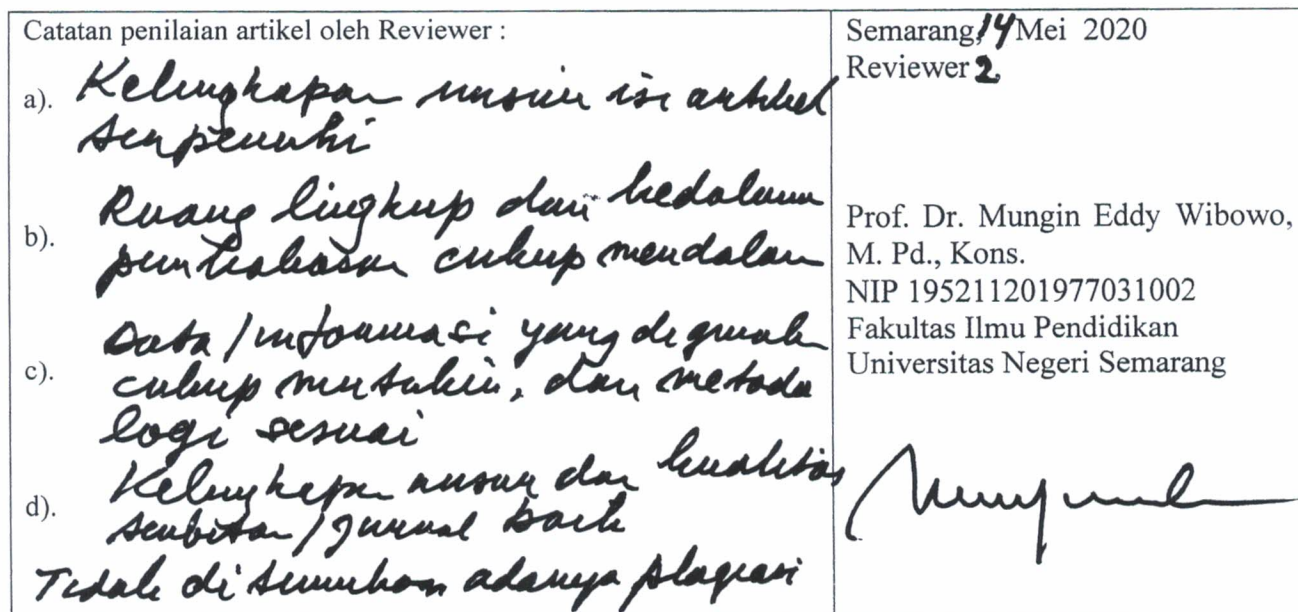 Catatan penilaian artikel oleh Reviewer :
a). Kelengkapan unsur isi artikel
terpenuhi
b). Ruang lingkup dan kedalaman
pembahasan cukup mendalam
c). Data / informasi yang digunakan
cukup mutakhir, dan metodo
logi sesuai
d). Kelengkapan unsur dan kualitas
terbitan / jurnal baik
Tidak ditemukan adanya plagiasi
Semarang, 14 Mei 2020
Reviewer 2
Prof. Dr. Mungin Eddy Wibowo,
M. Pd., Kons.
NIP 195211201977031002
Fakultas Ilmu Pendidikan
Universitas Negeri Semarang